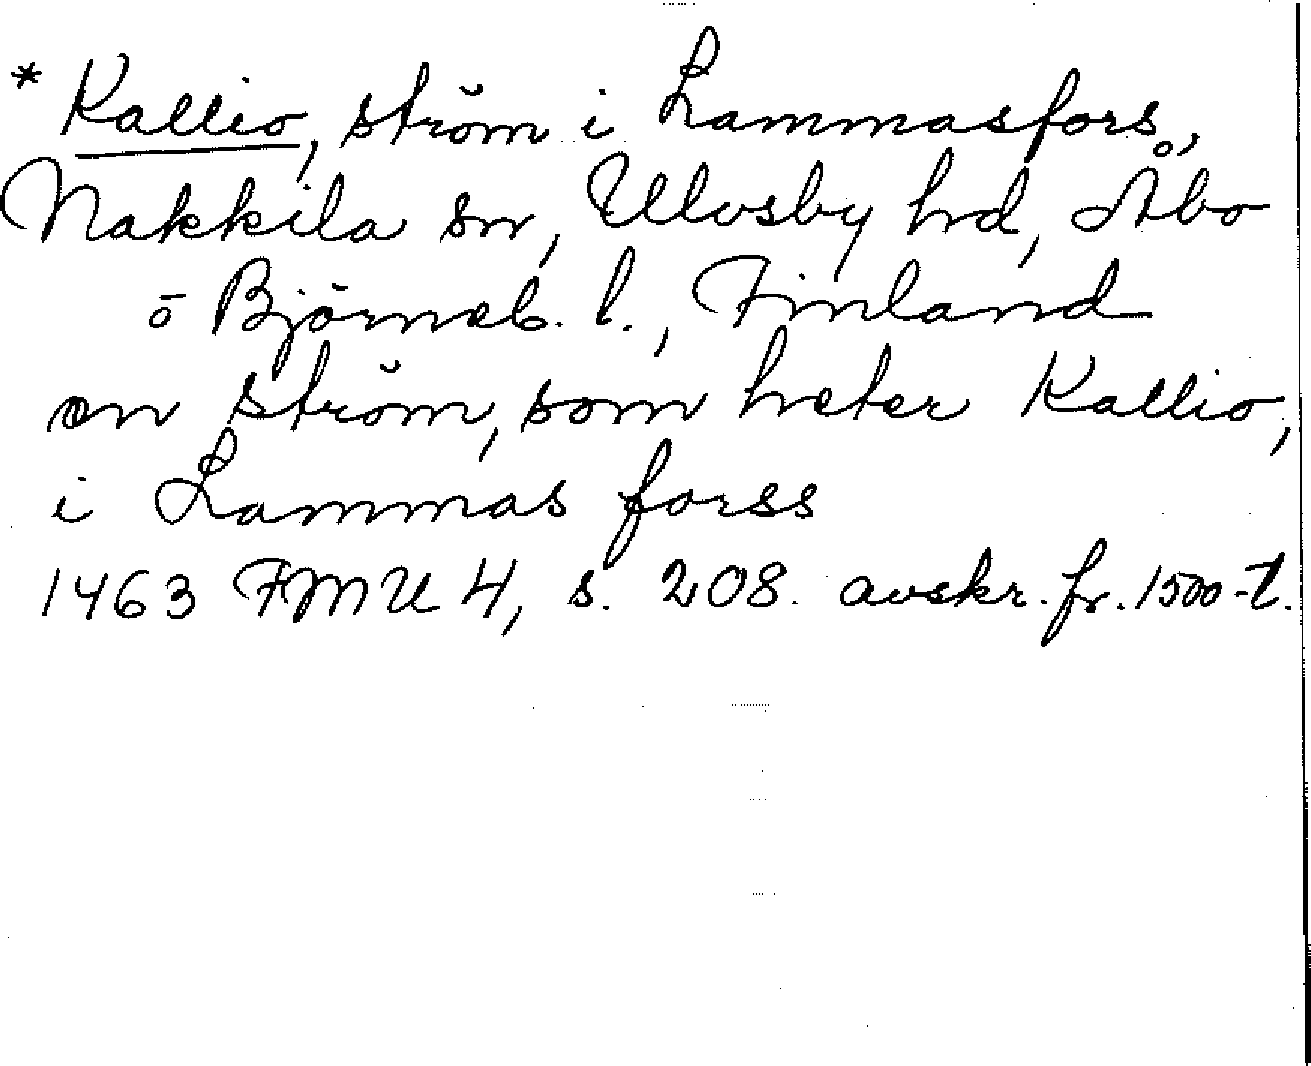 * Kallio, ström i Lammasfors,
Nakkila sn, Ulvsby hd, Åbo
o Björneb. l., Finland
en ström, som heter Kallio,
i Lammas forss
1463 FMU 4, s. 208. avskr. fr. 1500-t.